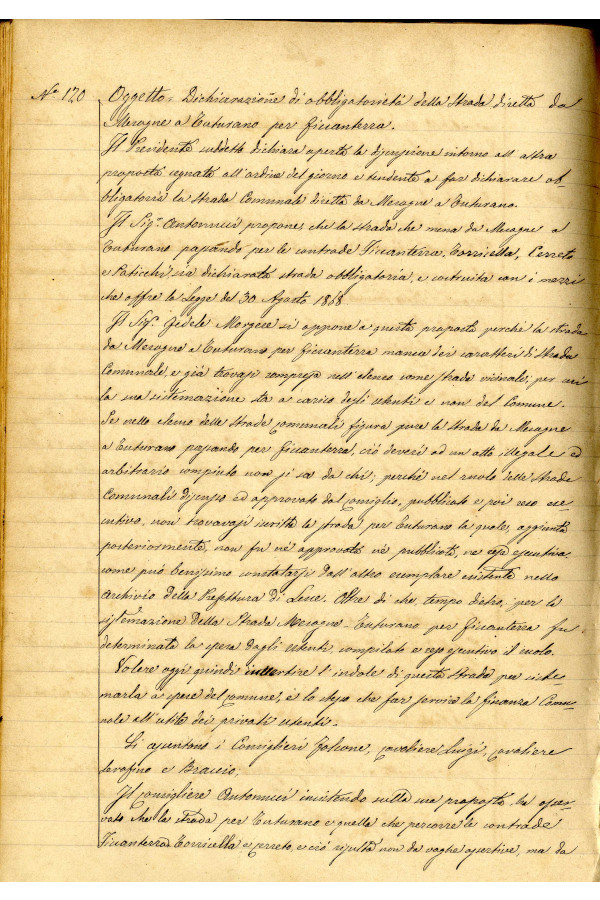 N.º 120 Oggetto: Dichiarazione di obbligatorietà della Strada diretta da
Mesagne a Tuturano per Ficuanterra.
Il Presidente suddetto dichiara aperta la discussione intorno all'altra
proposta segnata all'ordine del giorno e tendente a far dichiarare ob-
bligatoria la strada Comunale diretta da Mesagne a Tuturano.
Il Sig.r Antonucci propone, che la strada che mena da Mesagne a
Tuturano passando per le contrade Ficuanterra, Torricella, Cerreto
e Paticchi sia dichiarata strada obbligatoria, e costruita con i mezzi
che offre la Legge del 30 Agosto 1868.
Il Sig.r Fedele Morgese si oppone a questa proposta perchè la strada
da Mesagne a Tuturano per Ficuanterra manca dei caratteri di Strada
Comunale, e già trovasi compresa nell'elenco come strada vicinale, per cui
la sua sistemazione sta a carico degli utenti e non del Comune.
Se nello elenco delle Strade comunali figura pure la Strada da Mesagne
a Tuturano passando per Ficuanterra, ciò devesi ad un atto illegale ed
arbitrario compiuto non si sa da chi; perchè nel ruolo delle strade
Comunali discusso ed approvato dal consiglio, pubblicato e poi reso ese-
cutivo, non trovavasi iscritta la strada per Tuturano la quale, aggiunta
posteriormente, non fu nè approvata nè pubblicata, ne resa esecutiva,
come può benissimo constatarsi dall'altro esemplare esistente nello
Archivio della Prefettura di Lecce. Oltre di che, tempo dietro, per la
sistemazione della Strada Mesagne-Tuturano per Ficuanterra fu
determinata la spesa dagli utenti, compilato e reso esecutivo il ruolo.
Volere oggi quindi invertire l'indole di questa strada per siste
marla a spese del comune, è lo stesso che far servire la finanza Comu-
nale all'utile dei privati utenti.
Si assentano i Consiglieri Falcone, cavaliere Luigi, cavaliere
Serafino e Braccio.
Il consigliere Antonucci insistendo sulla sua proposta ha osser-
vato che la strada per Tuturano e quella che percorre le contrade
Ficuanterra Torricella e Cerreto, e ciò risulta non da vaghe assertive, ma da